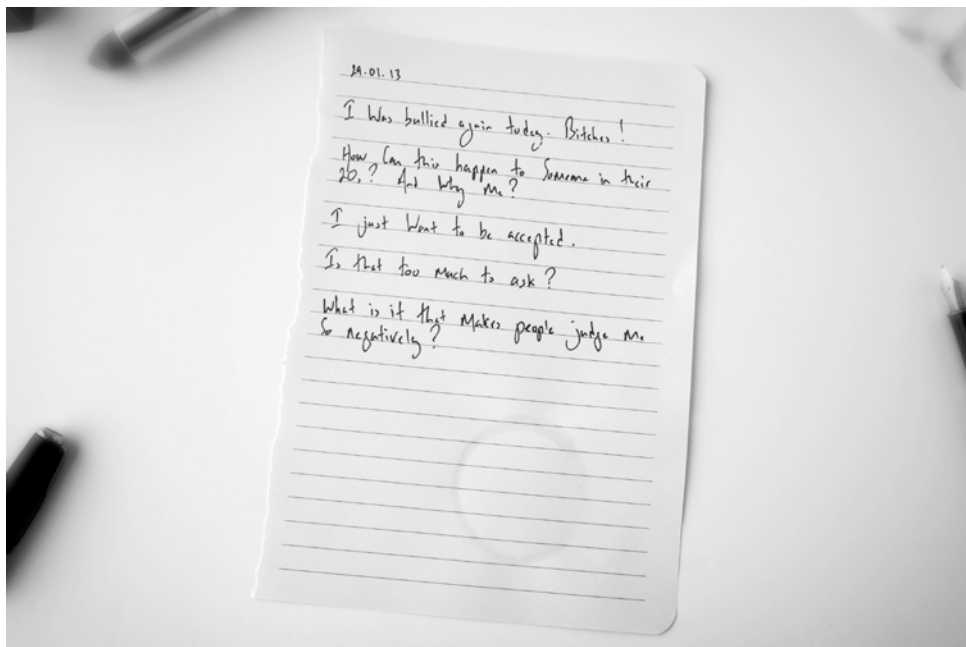 29.01.13
I Was bullied again today. Bitches!
How Can this happen to Someone in their
20s? And Why Me?
I just Want to be accepted.
Is that too Much to ask?
What is it that Makes people judge Me
So negatively?